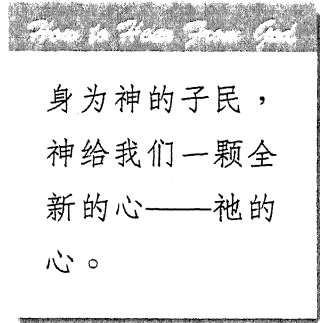 How to Hear From God
身为神的子民，
神给我们一颗全
新的心——祂的
心。